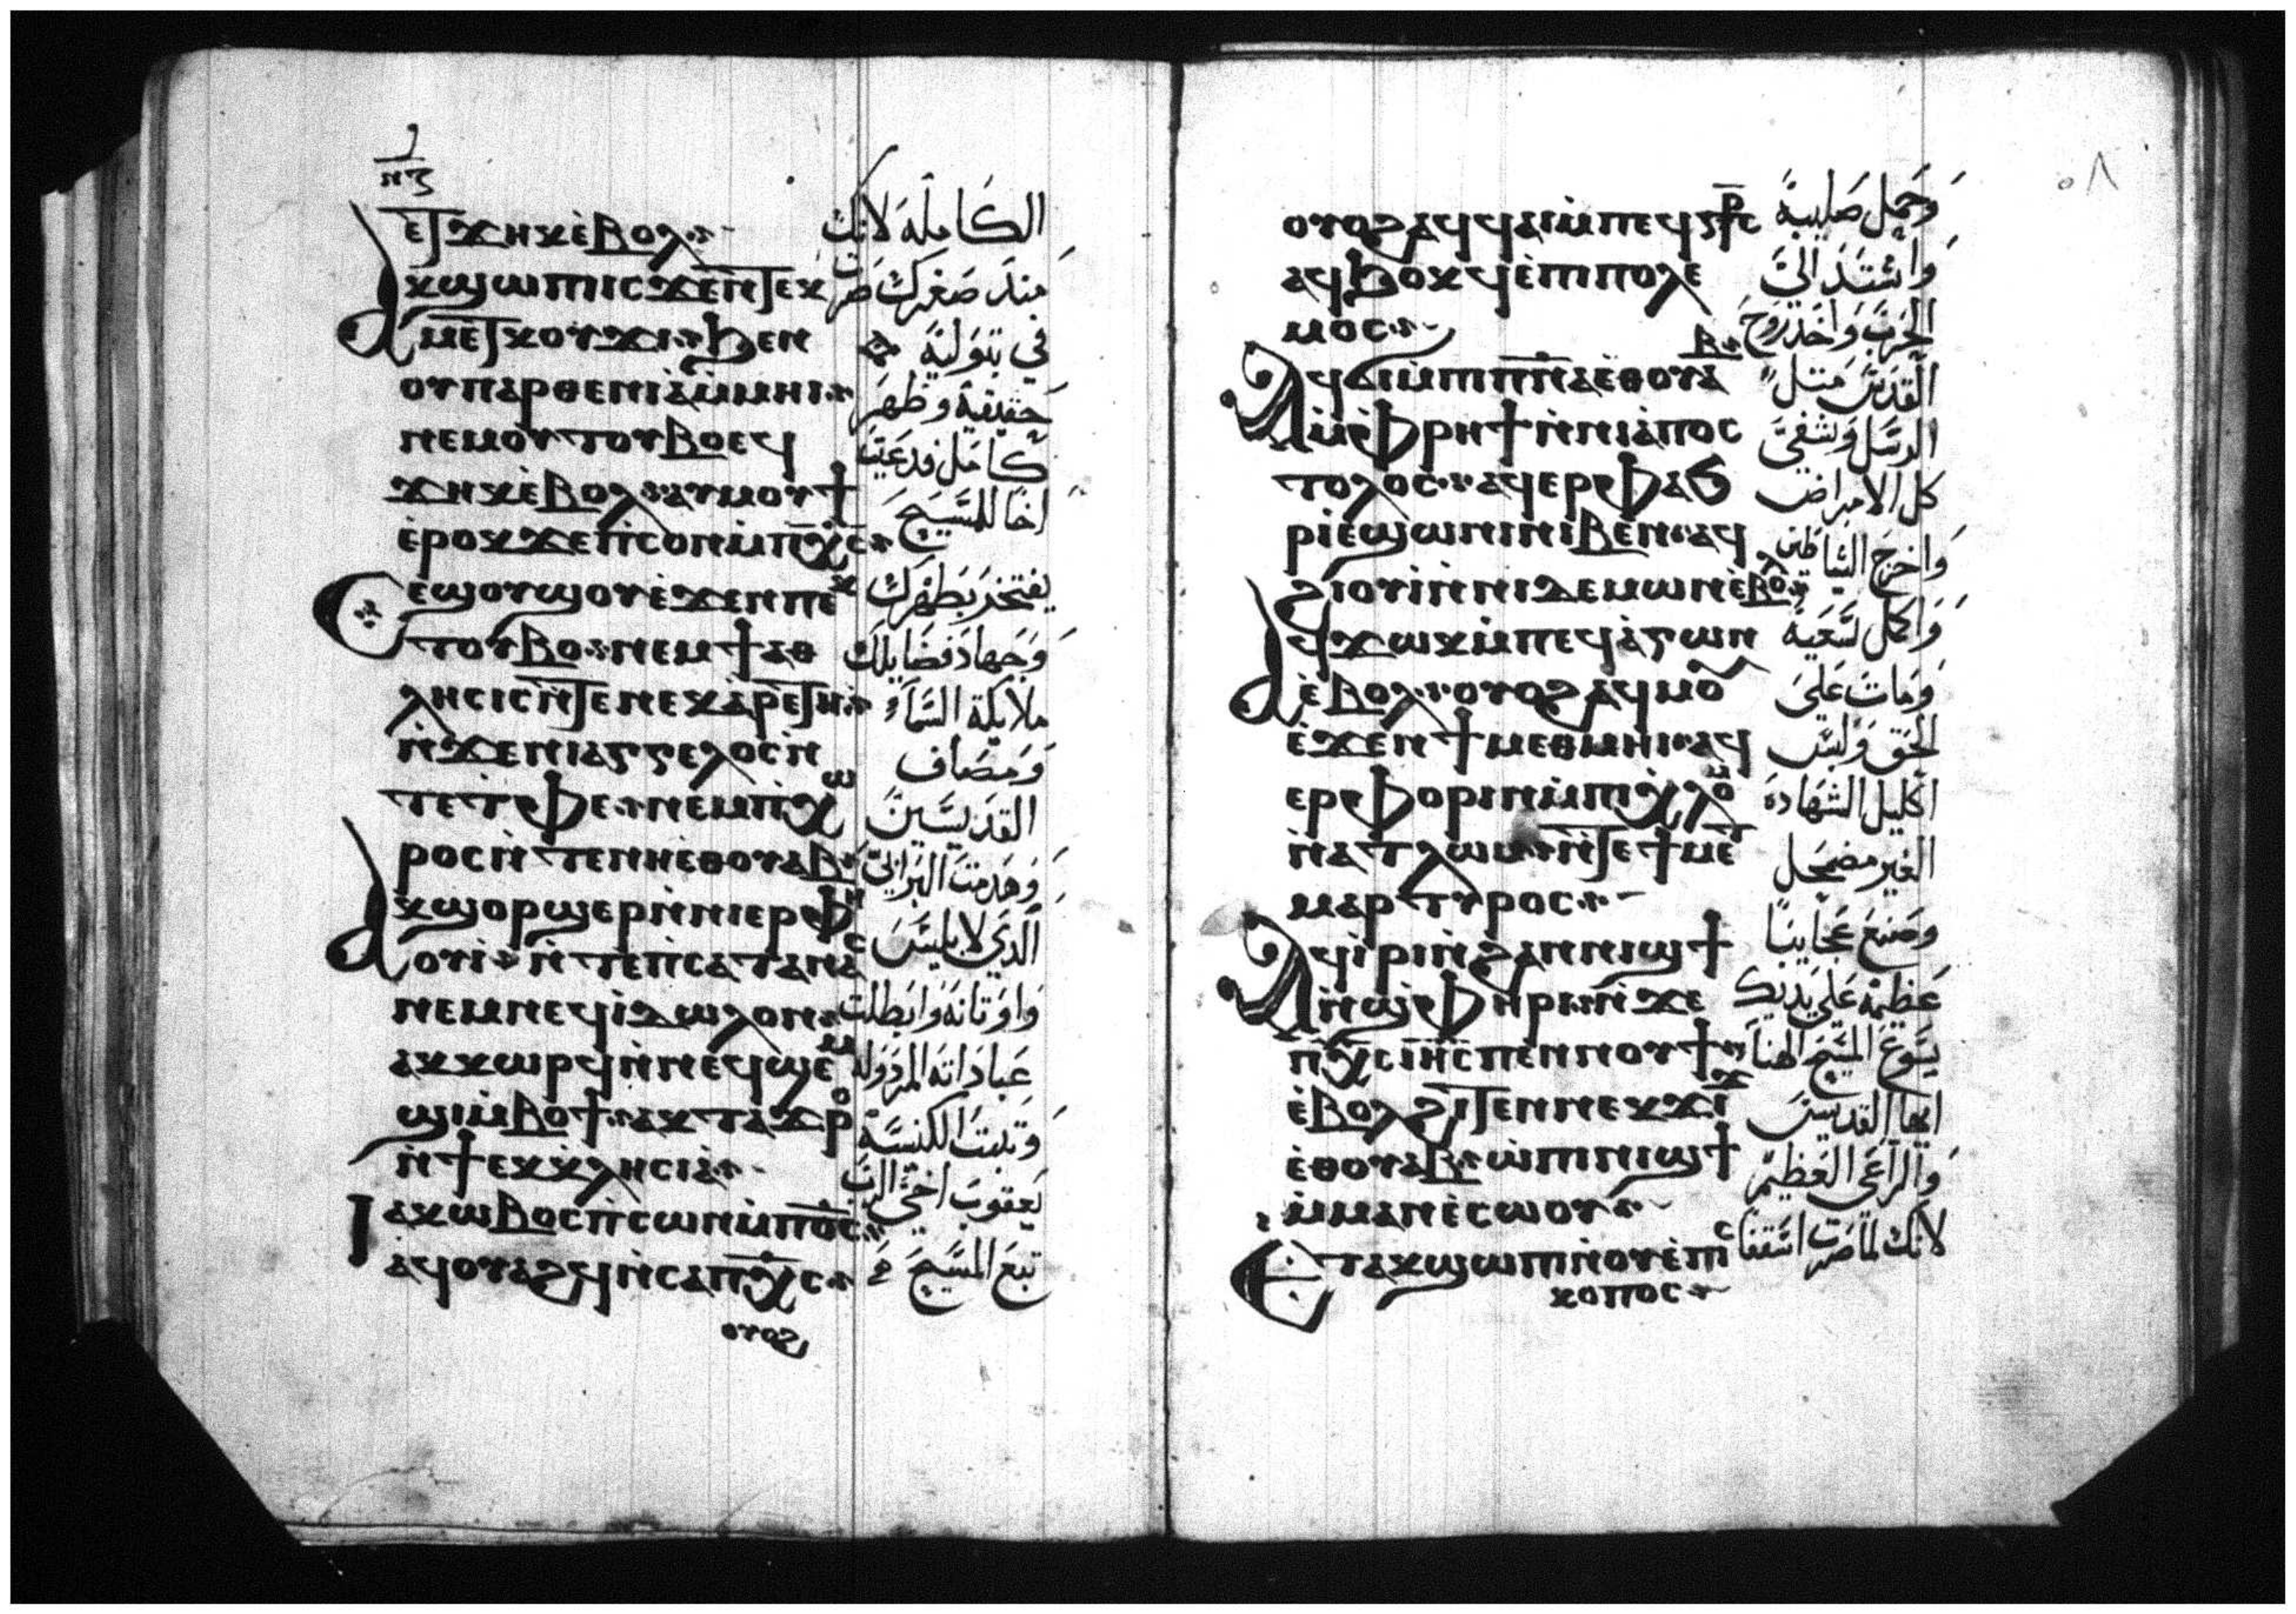 ⲉⲧϫⲏⲕ ⲉ̀ⲃⲟⲗ
ⲁⲕϣⲱⲡⲓ ⲓⲥϫⲉⲛ ⲧⲉⲕ
ⲙⲉⲧⲕⲟⲩϫⲓ ϧⲉⲛ
ⲟⲩⲡⲁⲣⲑⲉⲛⲓⲁ̀ ⲙ̀ⲙⲏⲓ
ⲛⲉⲙ ⲟⲩⲧⲟⲩⲃⲟ ⲉϥ
ϫⲏⲕ ⲉ̀ⲃⲟⲗ ⲁⲩⲙⲟⲩϯ
ⲉ̀ⲣⲟⲕ ϫⲉ ⲡ̀ⲥⲟⲛ ⲙ̀ⲡⲭ̅ⲥ̅
ⲥⲉϣⲟⲩϣⲟⲩ ⲉ̀ϫⲉⲛ ⲡⲉⲕ
ⲧⲟⲩⲃⲟ ⲛⲉⲙ ϯⲁⲑ
ⲗⲏⲥⲓⲥ ⲛ̀ⲧⲉ ⲛⲉⲕⲁ̀ⲣⲉⲧⲏ
ⲛ̀ϫⲉ ⲛⲓⲁⲅⲅⲉⲗⲟⲥ ⲛ̀
ⲧⲉ ⲧ̀ⲫⲉ ⲛⲉⲙ ⲡ̀ⲭⲱ
ⲣⲟⲥ ⲛ̀ⲧⲉ ⲛⲏⲉⲑⲟⲩⲁⲃ
ⲁⲕϣⲟⲣϣⲉⲣ ⲛ̀ⲛⲓⲉⲣⲫⲏ
ⲟⲩⲓ ⲛ̀ⲧⲉ ⲡ̀ⲥⲁⲧⲁⲛⲁⲥ
ⲛⲉⲙ ⲛⲉϥⲓ̀ⲇⲱⲗⲟⲛ
ⲁⲕⲕⲱⲣϥ ⲛ̀ⲛⲉϥϣⲉⲙ
ϣⲓ ⲙ̀ⲃⲟϯ ⲁⲕⲧⲁϫⲣⲟ
ⲛ̀ϯⲉⲕⲕⲗⲏⲥⲓⲁ̀
ⲓⲁⲕⲱⲃⲟⲥ ⲡ̀ⲥⲱⲛ ⲙ̀ⲡⲟ̅ⲥ̅
ⲁϥⲟⲩⲁϩϥ ⲛ̀ⲥⲁ ⲡⲭ̅ⲥ̅
ⲟⲩⲟϩ
الكاملة لانك
منذ صغرك صرت
في بتولية
حقيقية وظهر
كامل فدعيت
اخا للمسيح
يفتخر بطهرك
وجهاد فضايلك
ملايكة السماء
ومصاف
القديسين
وهدمت البرابي
الذي لابليس
واوتانه وابطلت
عباداته المرذوله
وثبت الكنيسة
يعقوب اخي الرب
تبع المسيح
٥٨
ⲟⲩⲟϩ ⲁϥϥⲁⲓ ⲙ̀ⲡⲉϥⲥ̅ⲧ̅ⲣ̅ⲥ̅
ⲁϥϭⲟⲕϥ ⲉ̀ⲡⲓⲡⲟⲗⲉ
ⲙⲟⲥ
ⲁϥϭⲓ ⲙ̀ⲡⲓⲡ̅ⲛ̅ⲁ̅ ⲉⲑⲟⲩⲁⲃ
ⲙ̀ⲫⲣⲏϯ ⲛ̀ⲛⲓⲁ̀ⲡⲟⲥ
ⲧⲟⲗⲟⲥ ⲁϥⲉⲣⲫⲁϧ
ⲣⲓ ⲉ̀ϣⲱⲛⲓ ⲛⲓⲃⲉⲛ ⲁϥ
ϩⲓⲟⲩⲓ̀ ⲛ̀ⲛⲓⲇⲉⲙⲱⲛ ⲉ̀ⲃⲟⲗ
ⲁϥϫⲱⲕ ⲙ̀ⲡⲉϥⲁ̀ⲅⲱⲛ
ⲉ̀ⲃⲟⲗ ⲟⲩⲟϩ ⲁϥⲙⲟⲩ
ⲉ̀ϫⲉⲛ ϯⲙⲉⲑⲙⲏⲓ ⲁϥ
ⲉⲣⲫⲟⲣⲓⲛ ⲙ̀ⲡⲓⲭⲗⲟⲙ
ⲛ̀ⲁⲧⲗⲱⲙ ⲛ̀ⲧⲉ ϯⲙⲉⲧ
ⲙⲁⲣⲧⲩⲣⲟⲥ
ⲁϥⲓ̀ⲣⲓ ⲛ̀ϩⲁⲛⲛⲓϣϯ
ⲛ̀ϣⲫⲏⲣⲓ ⲛ̀ϫⲉ
ⲡⲭ̅ⲥ̅ ⲓⲏ̅ⲥ̅ ⲡⲉⲛⲛⲟⲩϯ
ⲉ̀ⲃⲟⲗ ϩⲓⲧⲉⲛ ⲛⲉⲕϫⲓϫ
ⲉ̀ⲑⲟⲩⲁⲃ ⲱ̀ ⲡⲓⲛⲓϣϯ
ⲙ̀ⲙⲁⲛⲉ̀ⲥⲱⲟⲩ
ⲉⲧⲁⲕϣⲱⲡⲓ ⲛ̀ⲟⲩⲉ̀ⲡⲓⲥ
ⲕⲟⲡⲟⲥ
وحمل صليبة
واشتد الي
الحرب واخذ روح
القدس متل
الرسل وشفي
كل الامراض
واخرج الشياطين
واكمل لسعية
ومات علي
الحق ولبس
اكليل الشهادة
الغير مضمحل
وصنع عجايبا
عظيمة علي يديك
يسوع المسيح الهنا
ايها القديس
والراعي العظيم
لانك لما صرت اسقفا